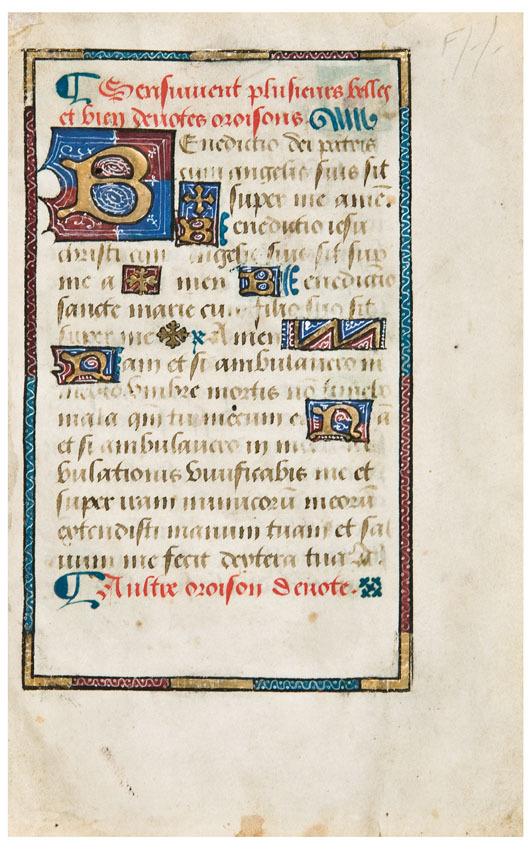 Sensuivent plusieurs belles
et bien deuotes oroisons
Benedictio dei patris
cum angelis suis sit
super me amē
Benedictio iesu
christi cum angelis suis sit sup
me a men Benedictio
sancte marie cum filio suo sit
super me Amen
Nam et si ambulauero in
medio vmbre mortis nō timebo
mala qm̄ tu mecum es Na
et si ambulauero in me
bulationis viuificabis me et
super iram inimicorū meorū
extendisti manum tuam et sal
uum me fecit dextera tua
Aultre oroison deuote.